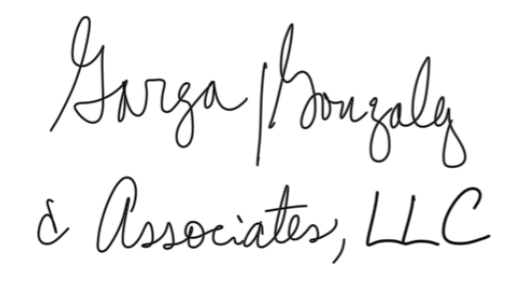 Garza | Gonzalez
& Associates, LLC